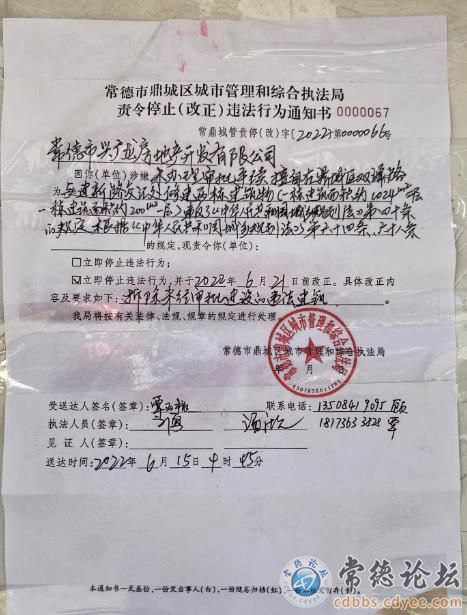 常德市鼎城区城市管理和综合执法局
责令停止(改正)违法行为通知书 0000067
常鼎城管责停(改)字〔2022〕第0000066号
常德市兴广龙房地产开发有限公司
因你(单位)涉嫌未办理审批手续擅自在鼎城区双潭路
与建新路交汇处修建两栋建筑物(一栋建筑面积约1024m²一层
一栋建筑面积约200m²一层)违反了《中华人民共和国城乡规划法》第四十条
的规定,根据《中华人民共和国城乡规划法》第六十四条、六十八条
的规定,现责令你(单位):
□立即停止违法行为;
☑立即停止违法行为,并于2022年6月21日前改正。具体改正内
容及要求如下:拆除未经审批建设的违法建筑。
我局将按有关法律、法规、规章的规定进行处理。
常德市鼎城区城市管理和综合执法局
年 月 日
受送达人签名(签章):
联系电话:13508419095
执法人员(签章):
18173633828
见 证 人(签章):
送达时间:2022年6月15日 时45分
本通知书一式叁份,一份交当事人(白),一份随卷归档(红)
常德论坛
cdbbs.cdyee.com